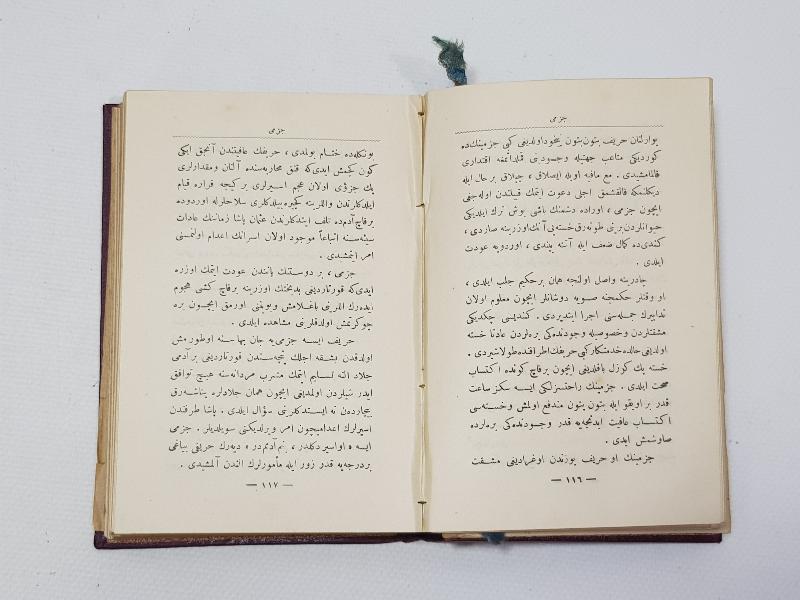 جزمی
یوارلنان حریف بتون بتون بیخود اولدیغی کبی جزمینك ده
کوردیکی متاعب جهتیله وجودینی قلداتمغه اقتداری
قالمامشیدی . مع مافیه اویله ایصلاق ، چیلاق بر حال ایله
دیکلنمکه قالقشمق اجلی دعوت ایتمك قبیلندن اوله جغی
ایچون جزمی ، اوراده دشمنك باشی بوش ترك ایلدیکی
حیوانلردن برینی طوته رق خسته یی آنك اوزرینه صاردی ،
کندی ده کمال ضعف ایله آتنه بیندی ، اوردویه عودت
ایلدی .
چادرینه واصل اولنجه همان بر حکیم جلب ایلدی ،
او وقتلر حکمجه صویه دوشنلر ایچون معلوم اولان
تدابیرك جمله سنی اجرا ایتدیردی . کندیسی چکدیکی
مشقتلردن وخصوصیله وجودنده کی یره لردن عادتا خسته
اولدیغی حالده خدمتکار کبی حریفك اطرافنده طولاشیردی .
خسته یك کوزل باقلدیغی ایچون بر قاچ کونده اکتساب
صحت ایلدی . جزمینك راحتسزلکی ایسه سکز ساعت
قدر بر اویقو ایله بتون بتون مندفع اولمش وخسته سی
اکتساب عافیت ایدنجه یه قدر وجودنده کی یره لرده
صاوشمش ایدی .
جزمینك او حریف یوزندن اوغرادیغی مشقت
— ١١٦ —
جزمی
بونکله ده ختام بولمدی ، حریفك عافیتندن آنجق ایکی
کون کچمش ایدی که قنق محاربه سنده آلنان ومقدارلری
یك جزئی اولان عجم اسیرلری بر کیجه فراره قیام
ایلدکلرندن واللرینه کچیره بیلدکلری سلاحلرله اوردوده
بر قاچ آدم ده تلف ایتدکلرندن عثمان پاشا زماننك عادات
سیئه سنه اتباعاً موجود اولان اسرانك اعدام اولنمسنی
امر ایتمشدی .
جزمی ، بر دوستنك یانندن عودت ایتمك اوزره
ایدی که قورتاردیغی بدبختك اوزرینه بر قاچ کشی هجوم
ایده رك اللرینی باغلامش وبوینی اورمق ایچون یره
چوکرتمش اولدقلرینی مشاهده ایلدی .
حریف ایسه جزمی یه جان بهاسنه اوطورمش
اولدقدن بشقه اجلك پنجه سندن قورتاردیغی بر آدمی
جلاد النه تسلیم ایتمك مشرب مردانه سنه هیچ توافق
ایدر شیلردن اولمدیغی ایچون همان جلادلره یناشه رق
بیچاره دن نه ایستدکلرینی سؤال ایلدی . پاشا طرفندن
اسیرلرك اعدامیچون امر ویرلدیکنی سویلدیلر . جزمی
ایسه « او اسیر دکلدر ، بنم آدممدر » دیه رك حریفی بیاغی
بر درجه یه قدر زور ایله مأمورلرك الندن آلمشیدی .
— ١١٧ —